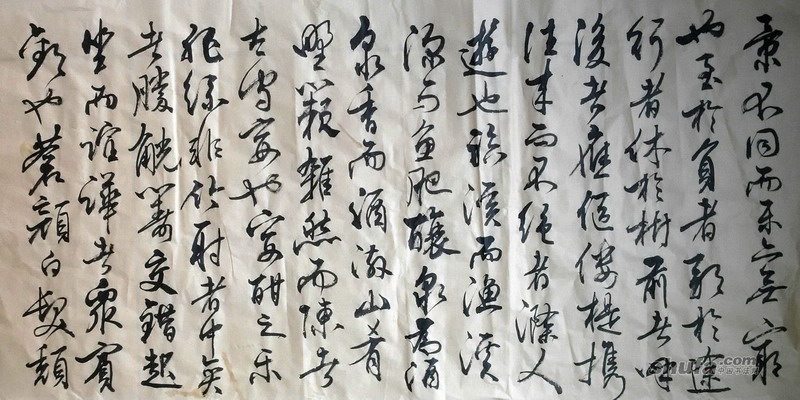 景不同而樂亦無窮
也至於負者歌於途
行者休於樹前者呼
後者應傴僂提攜
往來而不絕者滁人
遊也臨溪而漁溪
深而魚肥釀泉為酒
泉香而酒洌山肴
野蔌雜然而陳者
太守宴也宴酣之樂
非絲非竹射者中奕
者勝觥籌交錯起
坐而諠譁者眾賓
歡也蒼顏白髮頹